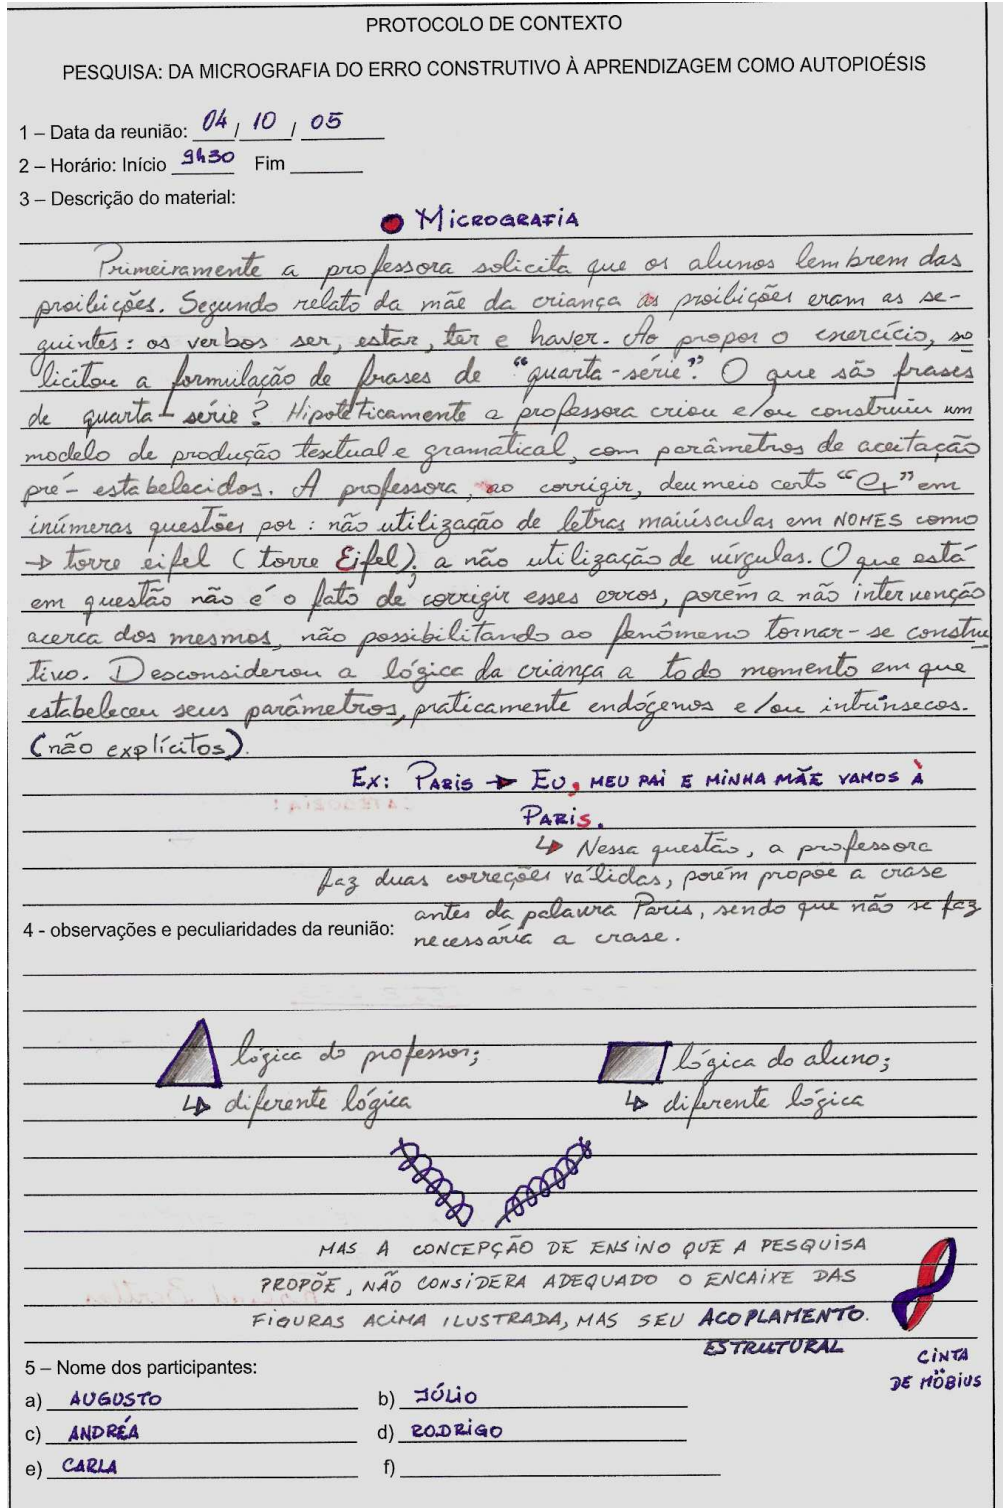 PROTOCOLO DE CONTEXTO
PESQUISA: DA MICROGRAFIA DO ERRO CONSTRUTIVO À APRENDIZAGEM COMO AUTOPIOÉSIS
1 – Data da reunião: 04 / 10 / 05
2 – Horário: Início 9h30 Fim
3 – Descrição do material:
MICROGRAFIA
Primeiramente a professora solicita que os alunos lembrem das
proibições. Segundo relato da mãe da criança as proibições eram as se-
guintes: os verbos ser, estar, ter e haver. Ao propor o exercício, so
licitou a formulação de frases de "quarta-série". O que são frases
de quarta-série? Hipoteticamente a professora criou e/ou construiu um
modelo de produção textual e gramatical, com parâmetros de aceitação
pré-estabelecidos. A professora, ao corrigir, deu meio certo " " em
inúmeras questões por: não utilização de letras maiúsculas em NOMES como
→ torre eifel (torre Eifel); a não utilização de vírgulas. O que está
em questão não é o fato de corrigir esses erros, porém a não intervenção
acerca dos mesmos, não possibilitando ao fenômeno tornar-se constru
tivo. Desconsiderou a lógica da criança a todo momento em que
estabeleceu seus parâmetros, praticamente endógenos e/ou intrínsecos.
(não explícitos).
EX: PARIS → EU, MEU PAI E MINHA MÃE VAMOS À
PARIS.
↳ Nessa questão, a professora
faz duas correções válidas, porém propõe a crase
antes da palavra Paris, sendo que não se faz
4 - observações e peculiaridades da reunião: necessária a crase.
lógica do professor; lógica do aluno;
↳ diferente lógica ↳ diferente lógica
MAS A CONCEPÇÃO DE ENSINO QUE A PESQUISA
PROPÕE, NÃO CONSIDERA ADEQUADO O ENCAIXE DAS
FIGURAS ACIMA ILUSTRADA, MAS SEU ACOPLAMENTO.
ESTRUTURAL
CINTA
DE MÖBIUS
5 – Nome dos participantes:
a) AUGUSTO b) JÚLIO
c) ANDRÉA d) RODRIGO
e) CARLA f)